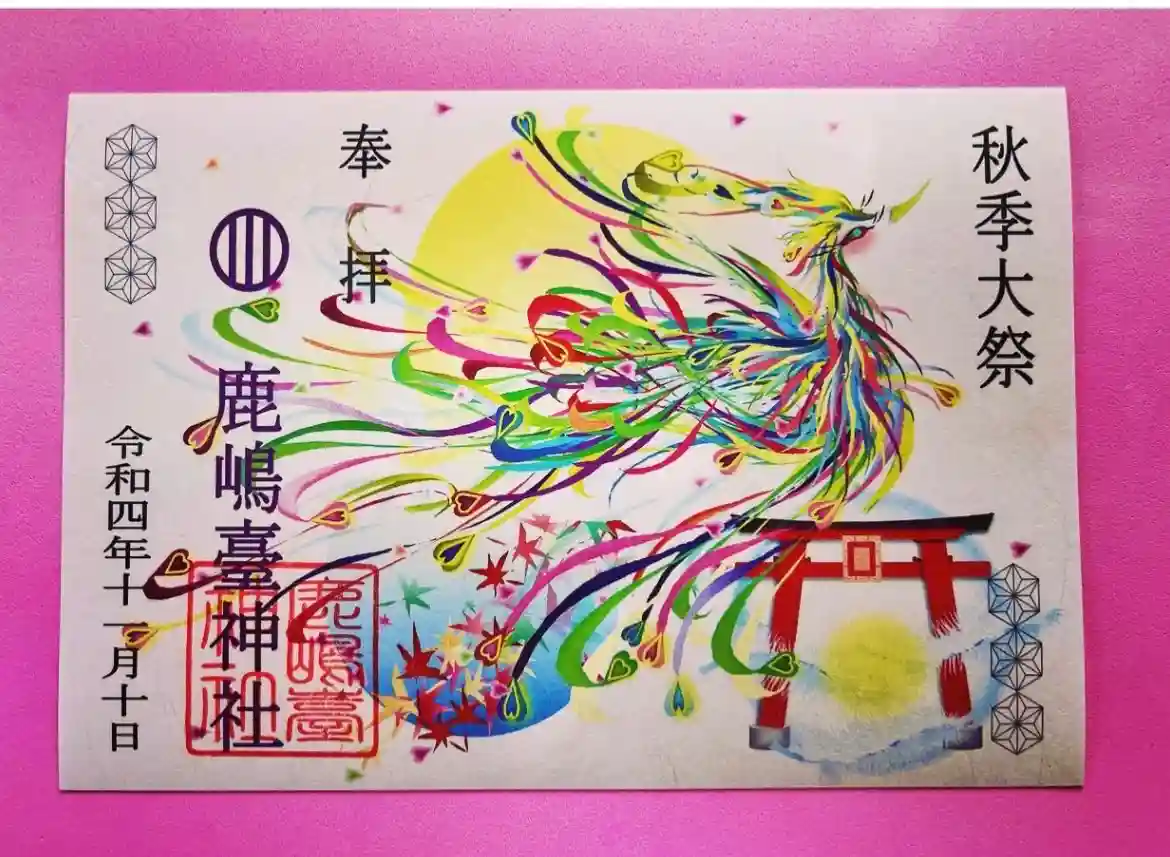 秋季大祭
奉拝
鹿嶋臺神社
鹿嶋臺
神社
令和四年十一月十日